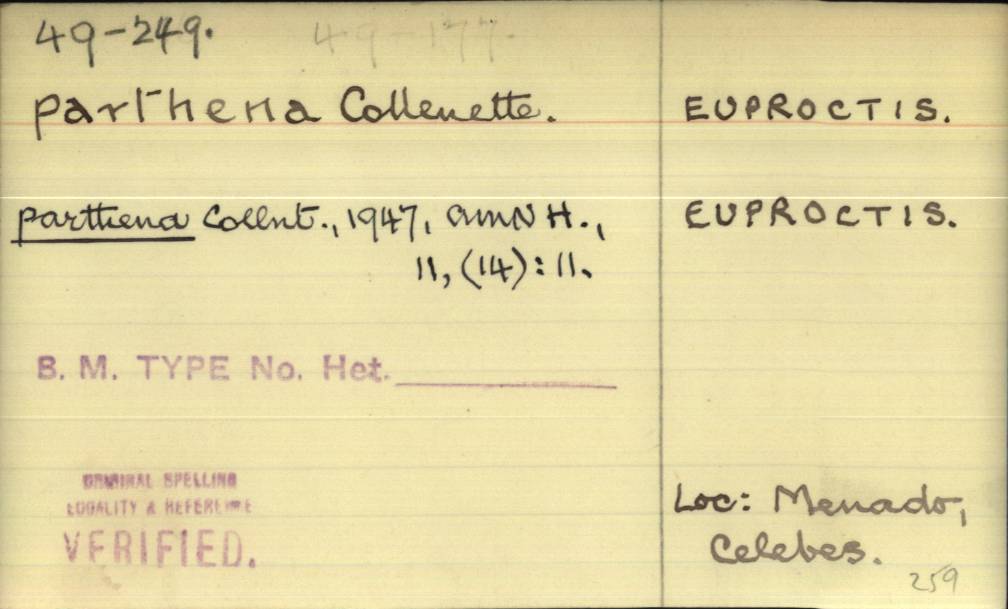 49-249. 49-177.
parthena Collenette. EUPROCTIS.
parthena Collnt., 1947, AMNH., EUPROCTIS.
11, (14): 11.
B. M. TYPE No. Het.
ORIGINAL SPELLING
LOCALITY & REFERENCE
VERIFIED.
Loc: Menado,
Celebes.
259